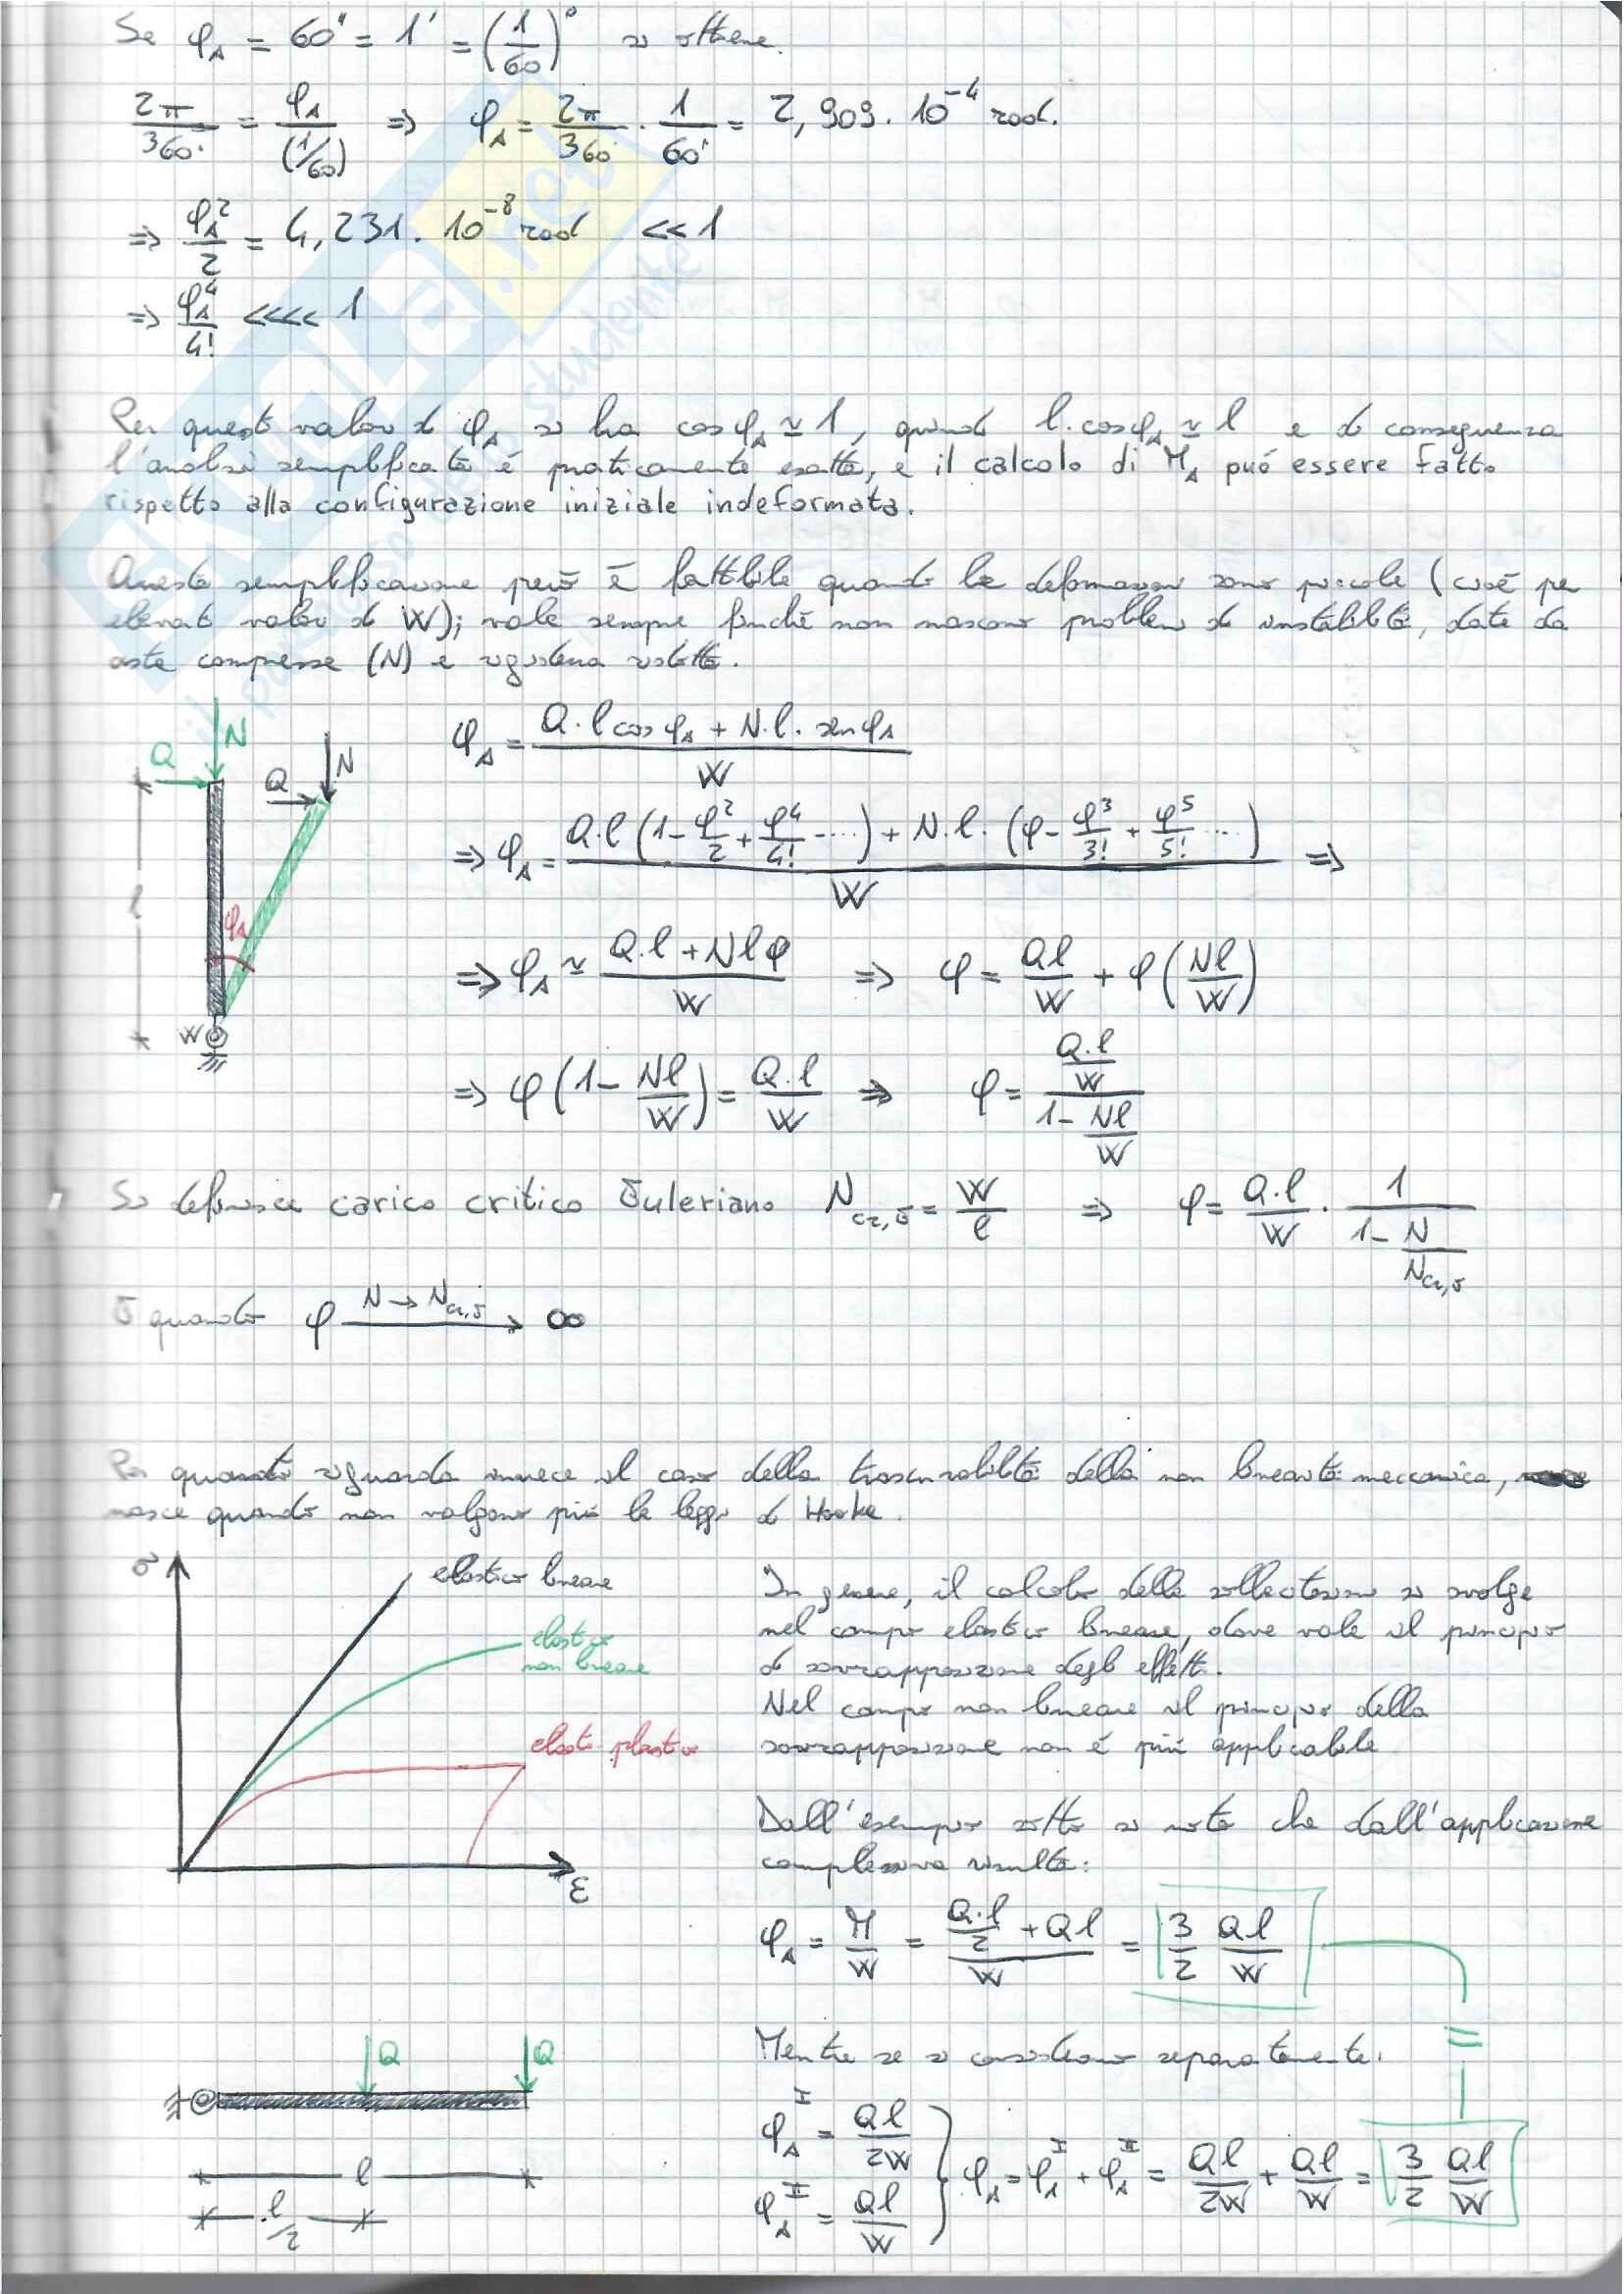 Se φ_A = 60" = 1' = (1/60)° si ottiene.
2π/360° = φ_A/(1/60) => φ_A = 2π/360 · 1/60' = 2,909 · 10^-4 rad.
=> φ_A²/2 = 4,231 · 10^-8 rad << 1
=> φ_A⁴/4! <<<< 1
Per questi valori di φ_A si ha cos φ_A ≃ 1, quindi l·cosφ_A ≃ l e di conseguenza
l'analisi semplificata é praticamente esatta, e il calcolo di M_A puó essere fatto
rispetto alla configurazione iniziale indeformata.
Questa semplificazione peró é fattibile quando le deformazioni sono piccole (cioé per
elevati valori di W); vale sempre finché non nascono problemi di instabilitá, date da
aste compresse (N) e rigidezza ridotta.
Q N
Q N
l
φ_A
W
φ_A = (Q·l cos φ_A + N·l·sen φ_A)/W
=> φ_A = (Q·l (1 - φ²/2 + φ⁴/4! ....) + N·l·(φ - φ³/3! + φ⁵/5! ...))/W =>
=> φ_A ≃ (Q·l + Nlφ)/W => φ = Ql/W + φ(Nl/W)
=> φ(1 - Nl/W) = Q·l/W => φ = (Q·l/W)/(1 - Nl/W)
Si definisce carico critico Euleriano N_cr,E = W/l => φ = Q·l/W · 1/(1 - N/N_cr,E)
E quando φ N→N_cr,E → ∞
Per quanto riguarda invece il caso della trascurabilitá della non linearitá meccanica,
nasce quando non valgono piú le leggi di Hooke.
σ
elastico lineare
elastico
non lineare
elasto-plastico
ε
In genere, il calcolo delle sollecitazioni si svolge
nel campo elastico lineare, dove vale il principio
di sovrapposizione degli effetti.
Nel campo non lineare il principio della
sovrapposizione non é piú applicabile
Dall'esempio sotto si nota che dall'applicazione
complessiva risulta:
φ_A = M/W = (Q·l/2 + Ql)/W = 3/2 Ql/W
=
Q Q
l
l/2
Mentre se si considerano separatamente:
φ_A^I = Ql/2W
φ_A^II = Ql/W
} φ_A = φ_A^I + φ_A^II = Ql/2W + Ql/W = 3/2 Ql/W
SKUOLA.net
il paradiso dello studente